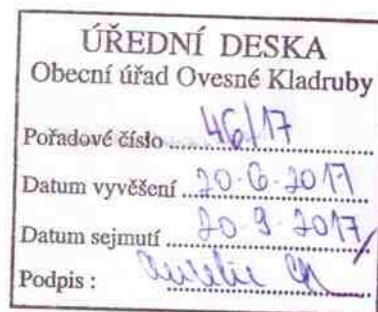 ÚŘEDNÍ DESKA
Obecní úřad Ovesné Kladruby
Pořadové číslo ..... 46/17
Datum vyvěšení 20.6.2017
Datum sejmutí 20.9.2017
Podpis :